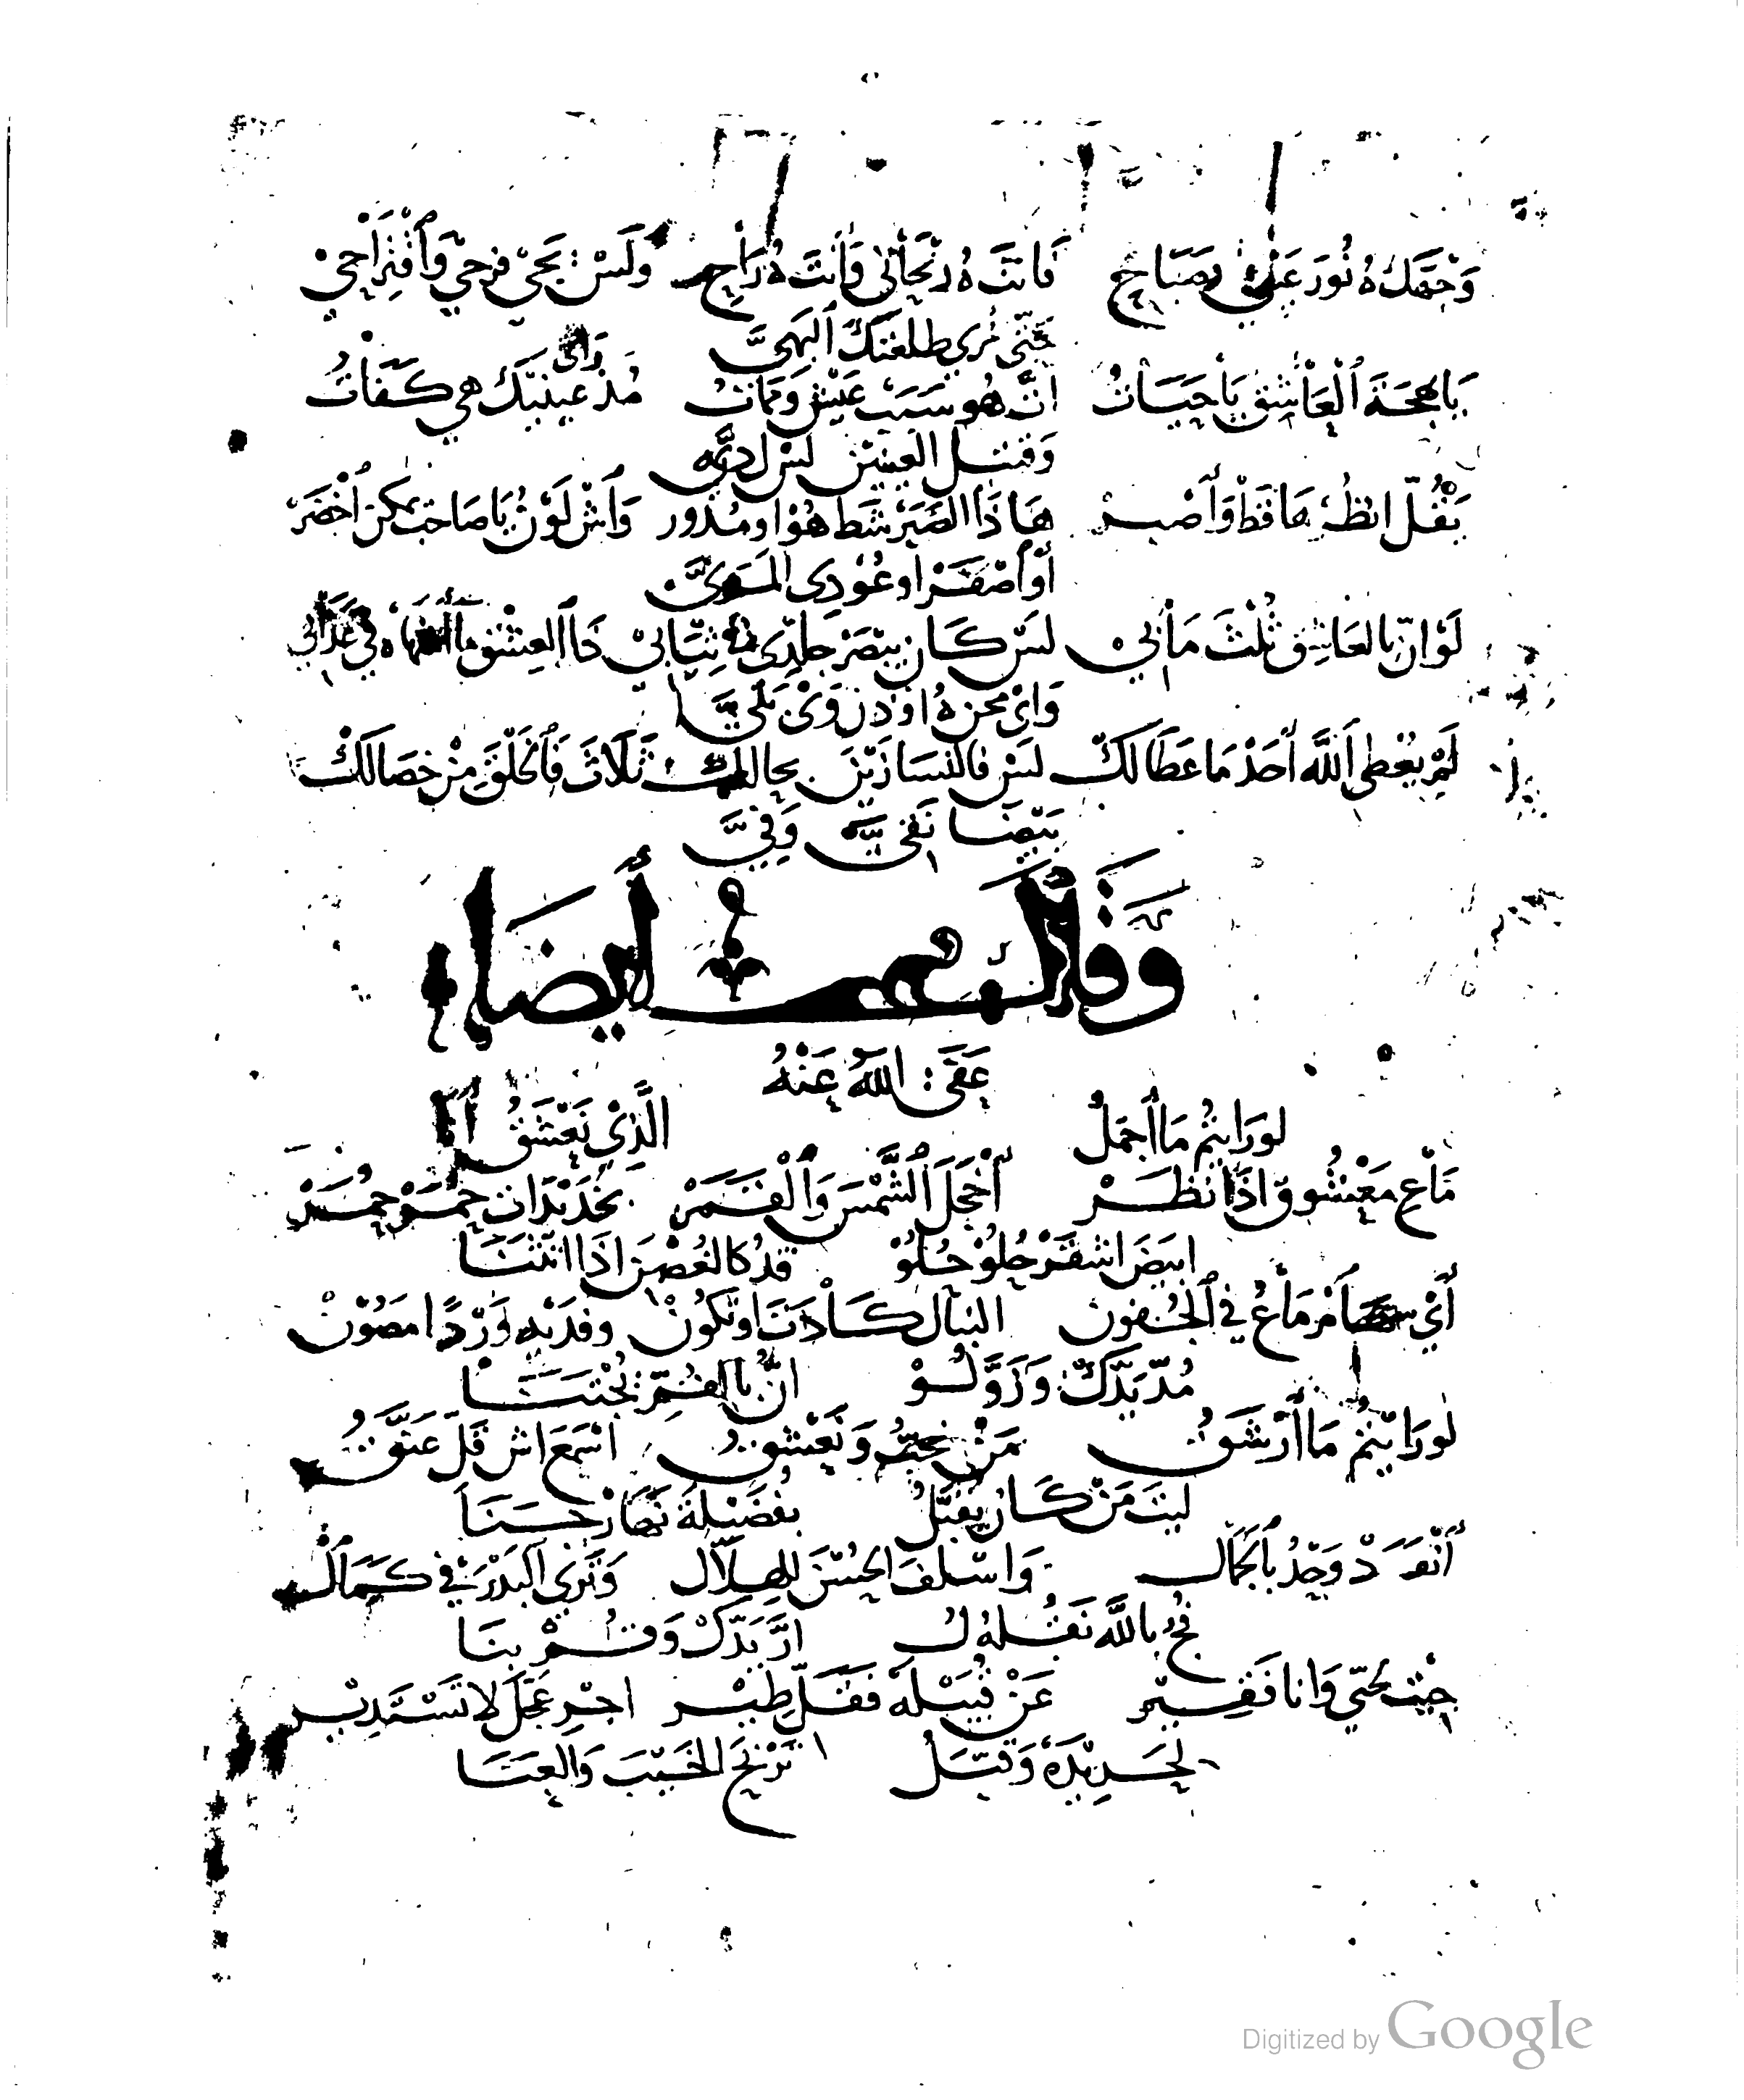 وَجْهَكْ هُ نُورَ عَيْنِي وصَبَاحِ فَانتَ هُ رَيْحَانِي وَأَنتَ هُ رَاحِ وَلَسْ يَجِي فَرَحِي وَاقْتِرَاحِي
حَتّى نَرى طَلعَتَكَ البَهِيَّ
يَا بهجَةَ الْعَاشِق يَا حَيَاتُ انّ هُو سَبَب عَيْش وَمَمَاتُ مُذ عينيك هي كَفَاتُ
وَقتل العينين لس لَ دِيَّه
يَقُلّ انظُرْ هَا قَطْ وَاصْبِر هَاذَا الصَبَرْ شَط هُوْ او مُدَوّر وَاشْ لَوْنُ يَا صَاحب يمكن أَخْضَرْ
أَو أَصْفَرْ او عُوْدِي
لَوْ انّ بِالعَاشِق ثُلْثَ مَا بِيْ لَسْ كَان يبْصَرْ جَلْدِي ثِيَابِيْ ذَا العِشْق مَا في عَذَابي
وَايْ محن هُ او ذُنْ وَيْ بَلِيَّا
لَمْ يُعْطِي اللَّه أَحَدْ مَا عَطَا لَكْ لَسْ فالنسَا زَيْنَ بحالك ثَلَاثَ فَالخَلْقَ مِنْ خصَالَكْ
بَيْضَا نَقِيَّ وَفِيَّ
وَقَالَ أَيضَا
عَفَى اللهُ عَنْهُ
لو رَايتُم مَا أَجمَلْ الَّذِيْ نَعْشَقُ أَنَا
مَاعِ مَعْشُوق اذَا نَظَرْ أَخْجَلَ الشَّمْسَ وَالْقَمَرْ بخُدَيْدَات حُمَرْ حُمَرْ
ابيَض اشقَرْ حُلُوْ حُلُوْ قَدُ كالغُصْن اذَا انثَنَا
أَيْ سهَامْ مَاعُ في الجُفون النبَال كَادَتَ او تكُونْ وفَدَيْهِ وَرْدًا مَصُوْنْ
مُدّ يَدَّكْ وَرَوَّلُوْ انّ بالفُمّ يُجْتَنَا
لو رَايْتُمْ مَا أَرْشَقُ مَنْ نحِبُّ وَنَعْشقُ اسْمَعَ اش قَلّ عَنَّقُ
ليتَ مَنْ كَان يُقبّلُ بفَضيْلة نَهَارْ حَسَنَا
أَنْفَرَدْ وَحْدُ بِالجَمَال وَاسْلَفَ الحُسْنَ للهِلَال وَتَرى البَدْرَ في كَمَالْ
قُمْ بالله نَقُلهُ لُ ارَّ يَدَّكْ وَقُمْ بنَا
جِيْتْ لحبّي وَانا فَقِيْر عَنْ قُبَيْلَهْ فَقَلّ طِيْر اجرِ عَجّلْ لا تَسْتَدِيْر
لجَريْدَةْ وَقَتَلْ تَرْبَحَ الخَيْبَ وَالعَنَا
Digitized by Google